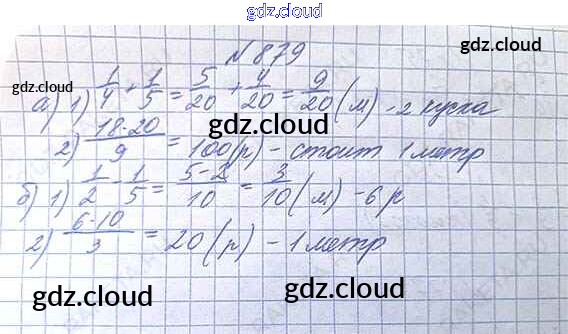 gdz.cloud
N 879
gdz.cloud gdz.cloud
а) 1) 1/4 + 1/5 = 5/20 + 4/20 = 9/20 (м) - 2 куска
gdz.cloud
2) 18·20/9 = 100(р) - стоит 1 метр
б) 1) 1/2 - 1/5 = 5-2/10 = 3/10 (м) - 6 р
gdz.cloud
2) 6·10/3 = 20 (р) - 1 метр
gdz.cloud gdz.cloud